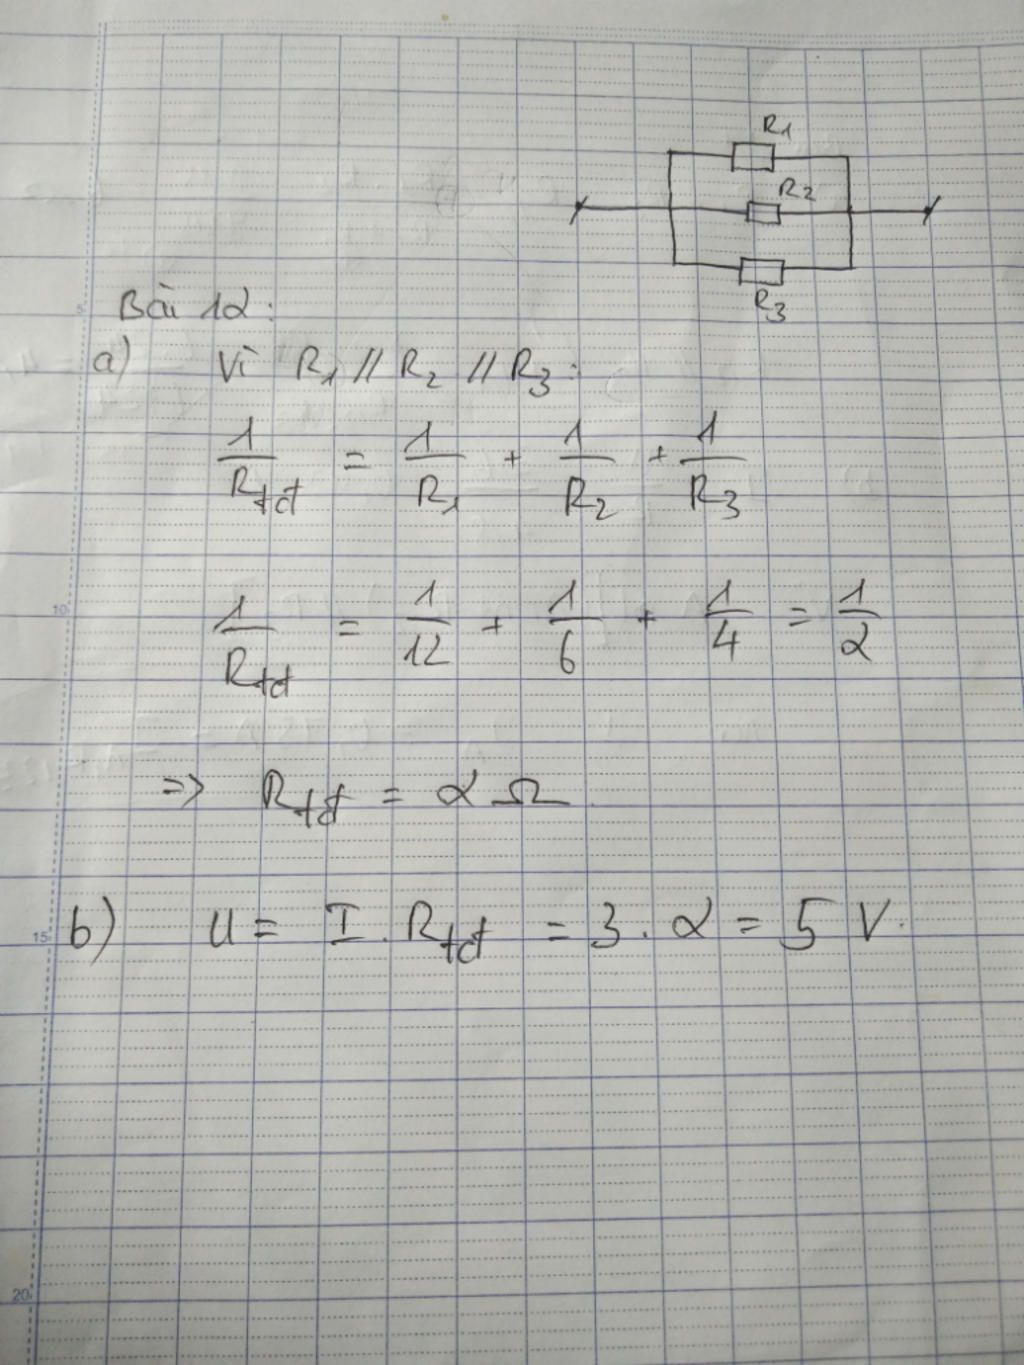 R1
R2
R3
Bài 12:
a) Vì R1 // R2 // R3:
1/Rtđ = 1/R1 + 1/R2 + 1/R3
1/Rtđ = 1/12 + 1/6 + 1/4 = 1/2
=> Rtđ = 2 Ω
b) U = I . Rtđ = 3 . 2 = 5 V.
5
10
15
20